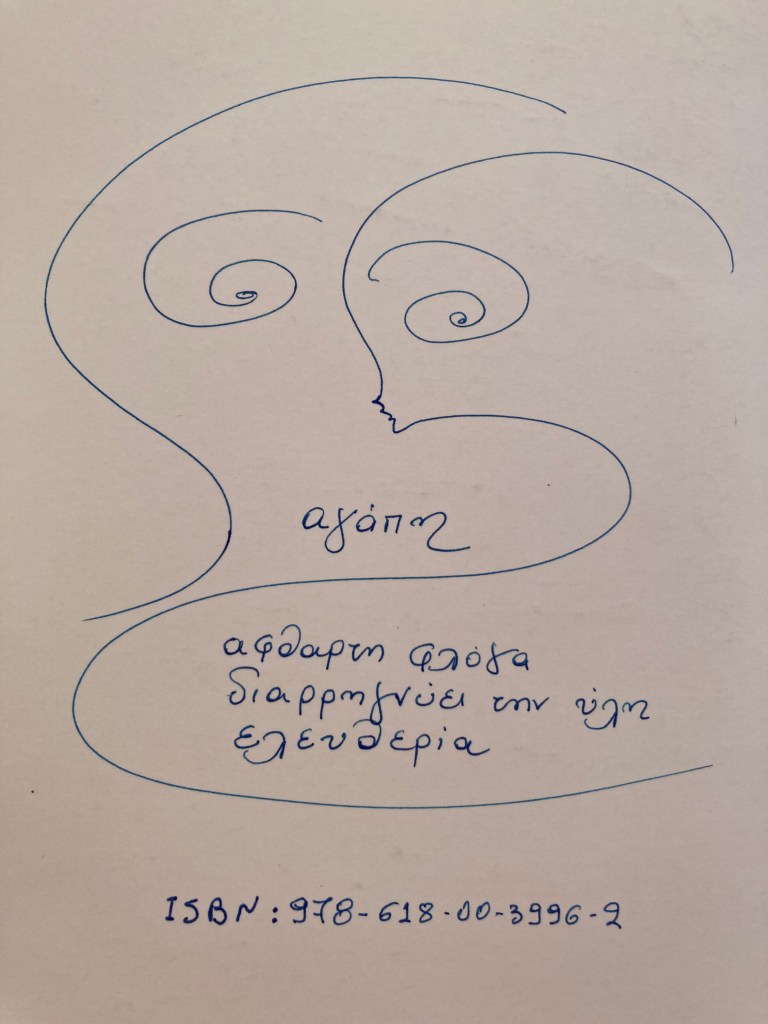 αγάπη
αφθαρτη φλόγα
διαρρηγνύει την ύλη
ελευθερία
ISBN: 978-618-00-3996-2